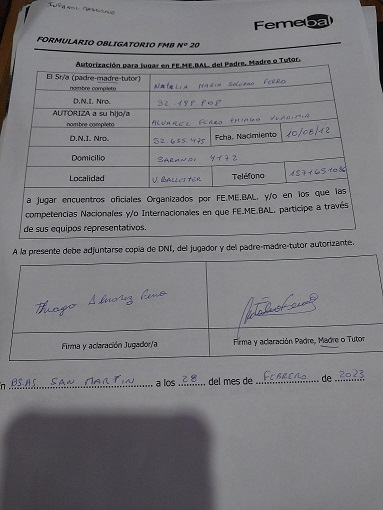 Femebal
FORMULARIO OBLIGATORIO FMB Nº 20
Autorización para jugar en FE.ME.BAL. del Padre, Madre o Tutor.
El Sr/a (padre-madre-tutor)
nombre completo
NATALIA MARIA FERRO
D.N.I. Nro.
AUTORIZA a su hijo/a
nombre completo
ALVAREZ FERRO THIAGO VLADIMIR
D.N.I. Nro.
52.655.475
Fcha. Nacimiento
10/08/12
Domicilio
SARANDI 4172
Localidad
V. BALLESTER
Teléfono
a jugar encuentros oficiales Organizados por FE.ME.BAL. y/o en los que las
competencias Nacionales y/o Internacionales en que FE.ME.BAL. participe a través
de sus equipos representativos.
A la presente debe adjuntarse copia de DNI, del jugador y del padre-madre-tutor autorizante.
Thiago Alvarez Ferro
Firma y aclaración Jugador/a
Firma y aclaración Padre, Madre o Tutor
n BSAS SAN MARTIN a los 28 del mes de FEBRERO de 2023